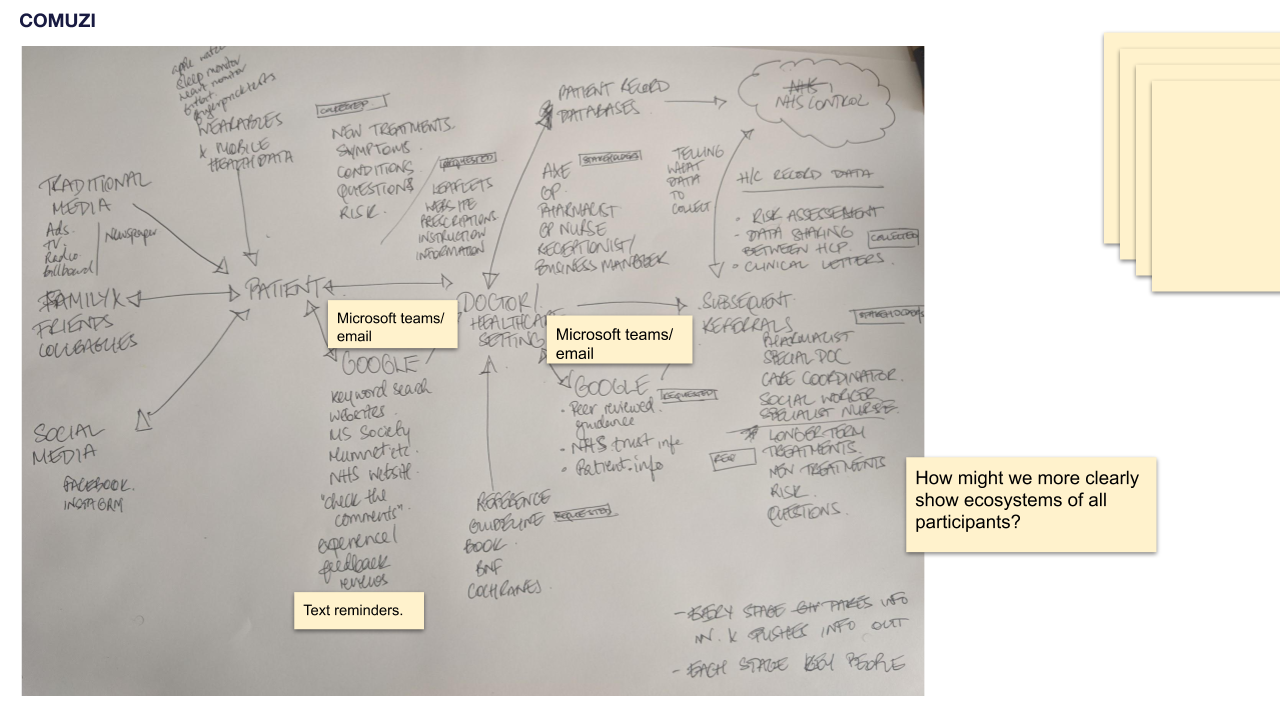 COMUZI
apple watch
sleep monitor
heart monitor
fitbit
fingerprick tests
WEARABLES
& MOBILE
HEALTH DATA
TRADITIONAL
MEDIA
Ads.
TV.
Radio.
billboard
Newspaper
FAMILY &
FRIENDS
COLLEAGUES
SOCIAL
MEDIA
FACEBOOK.
INSTAGRM
PATIENT
COLLECTED
NEW TREATMENTS.
SYMPTOMS.
CONDITIONS.
QUESTIONS
RISK.
REQUESTED
LEAFLETS
WEBSITE
PRESCRIPTIONS
INSTRUCTION
INFORMATION
Microsoft teams/
email
GOOGLE
keyword search
websites.
MS Society
Mumnet etc.
NHS website.
"check the
comments"
experience/
feedback
reviews
Text reminders.
PATIENT RECORD
DATABASES
STAKEHOLDERS
AXE
GP.
PHARMACIST
GP NURSE
RECEPTIONIST/
BUSINESS MANAGER
DOCTOR/
HEALTHCARE
SETTING
Microsoft teams/
email
GOOGLE
REQUESTED
• Peer reviewed
guidance
• NHS trust info
• Patient.info
REFERENCE
GUIDELINE
BOOK.
REQUESTED
BNF
COCHRANES.
NHS
NHS CONTROL
TELLING
WHAT
DATA
TO
COLLECT
H/C RECORD DATA
• RISK ASSESSMENT
• DATA SHARING
BETWEEN HCP.
COLLECTED
• CLINICAL LETTERS.
SUBSEQUENT
REFERRALS
STAKEHOLDERS
PHARMACIST
SPECIAL DOC
CARE COORDINATOR.
SOCIAL WORKER
SPECIALIST NURSE.
LONGER TERM
TREATMENTS.
REQ
NEW TREATMENTS
RISK.
QUESTIONS.
How might we more clearly
show ecosystems of all
participants?
- EVERY STAGE TAKES INFO
IN. & PUSHES INFO OUT
- EACH STAGE KEY PEOPLE